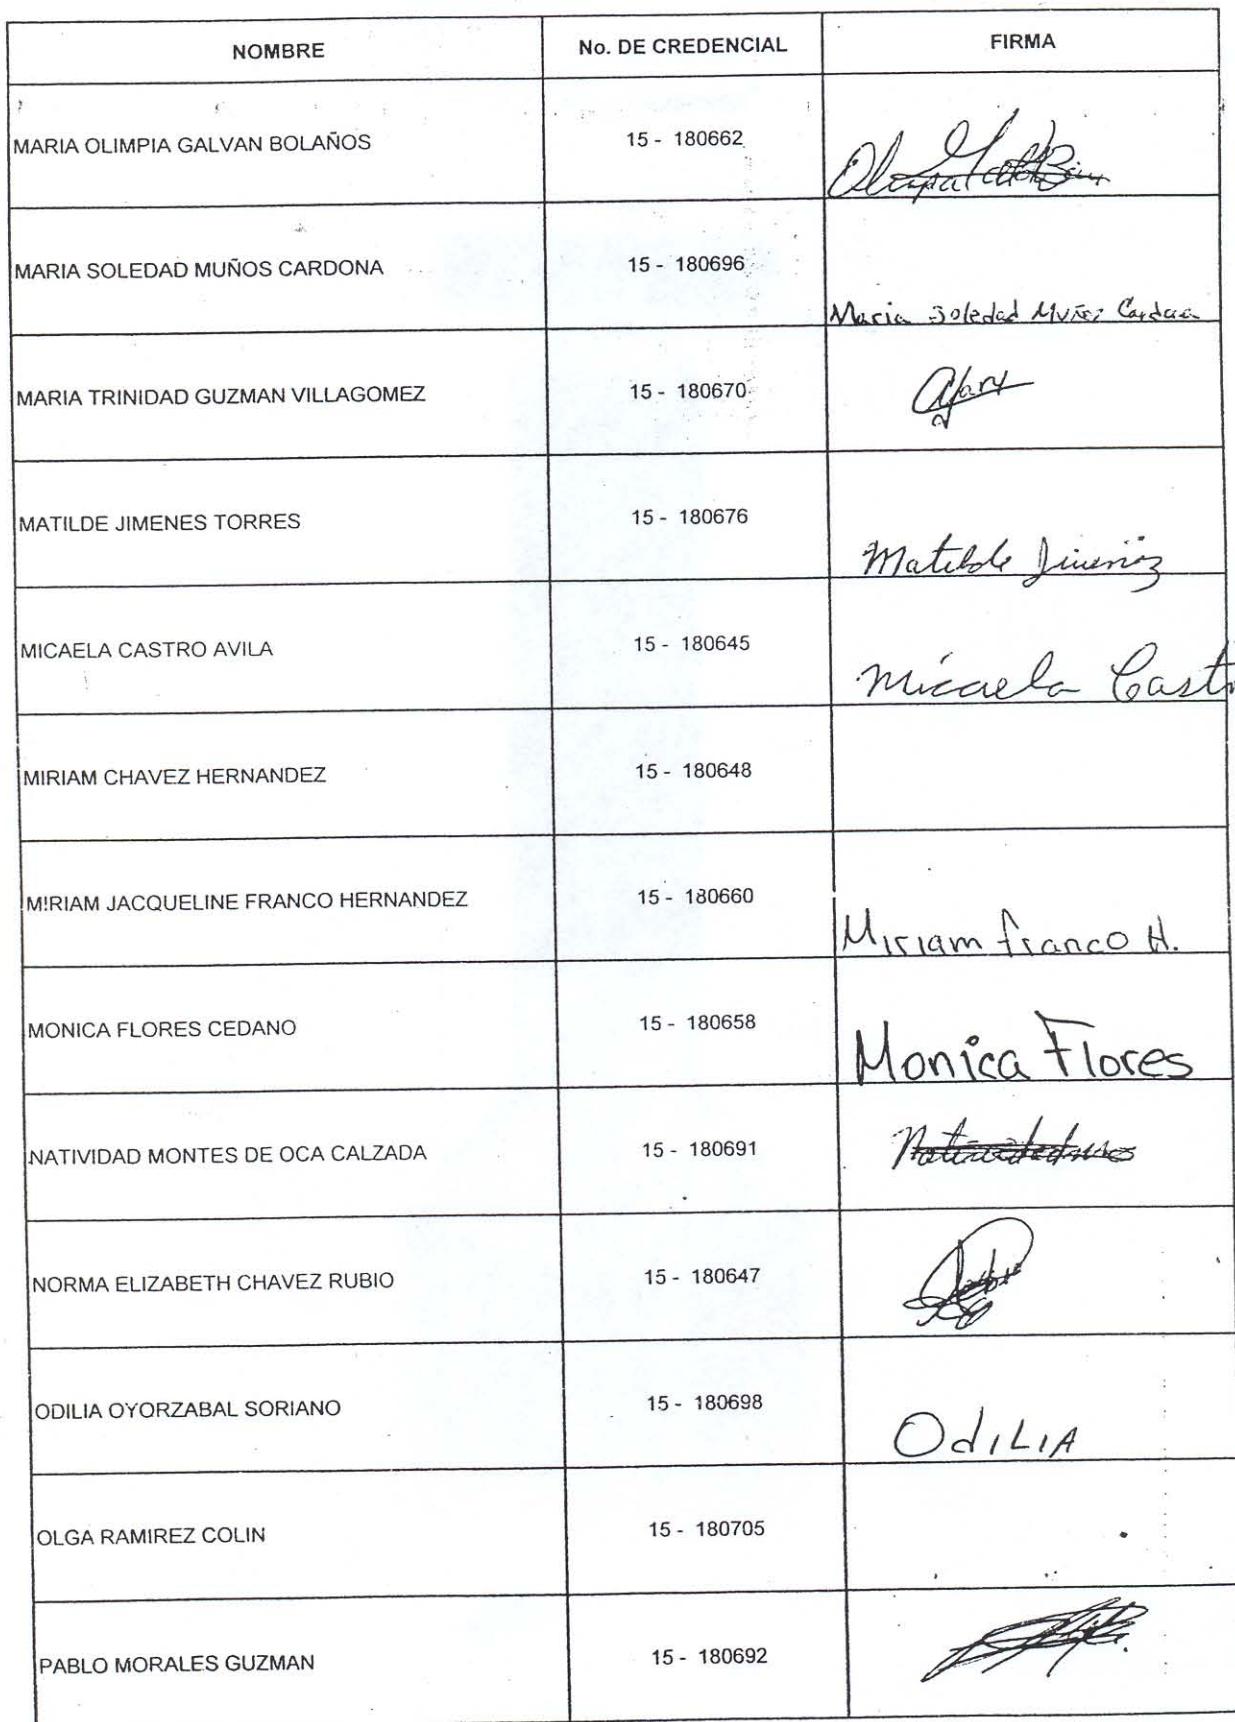 NOMBRE No. DE CREDENCIAL FIRMA
MARIA OLIMPIA GALVAN BOLAÑOS 15 - 180662
MARIA SOLEDAD MUÑOS CARDONA 15 - 180696 Maria Soledad Muñoz Cardona
MARIA TRINIDAD GUZMAN VILLAGOMEZ 15 - 180670
MATILDE JIMENES TORRES 15 - 180676 Matilde Jimenez
MICAELA CASTRO AVILA 15 - 180645 Micaela Castr
MIRIAM CHAVEZ HERNANDEZ 15 - 180648
MIRIAM JACQUELINE FRANCO HERNANDEZ 15 - 180660 Miriam franco H.
MONICA FLORES CEDANO 15 - 180658 Monica Flores
NATIVIDAD MONTES DE OCA CALZADA 15 - 180691
NORMA ELIZABETH CHAVEZ RUBIO 15 - 180647
ODILIA OYORZABAL SORIANO 15 - 180698 OdILIA
OLGA RAMIREZ COLIN 15 - 180705
PABLO MORALES GUZMAN 15 - 180692